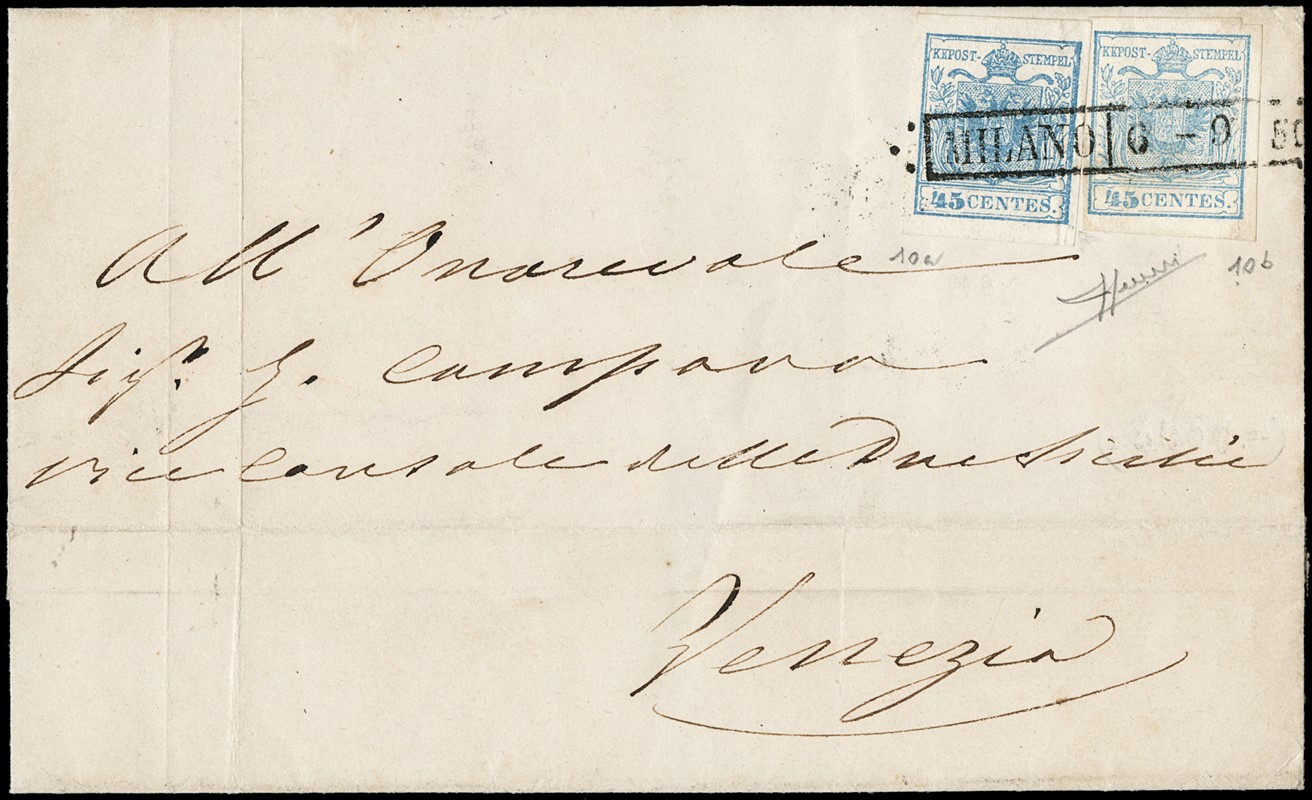 KKPOST-STEMPEL KKPOST-STEMPEL
MILANO 6 - 9 50
45 CENTES. 45 CENTES.
All'Onorevole
10a 10b
Sigr. G. Campana
Vice Console delle Due Sicilie
Venezia